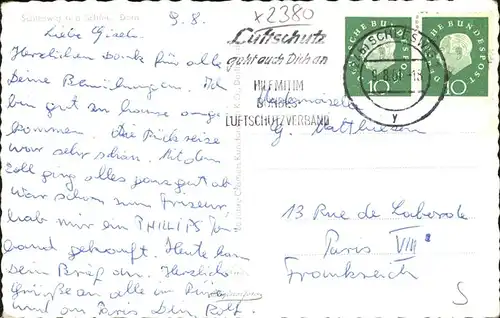 Schleswig a.d. Schlei, Dom
9.8.
x2380
Liebe Gisela.
Herzlichen Dank für alle
Deine Bemühungen. Ich
bin gut zu Hause ange
kommen. Die Rückreise
war sehr schön. Mit dem
Zoll ging alles ganz gut ab
War schon zum Friseur,
hab mir ein PHILLIPS Ton
band gekauft. Heute kam
Dein Brief an. Herzliche
Grüße an alle in
und an Paris Dein Rolf.
Luftschutz
geht auch Dich an
HILF MIT IM
BUNDES
LUFTSCHUTZVERBAND
SCHLESWIG
9.8.60-18
y
DEUTSCHE BUNDESPOST
10
DEUTSCHE BUNDESPOST
10
Mademoiselle
G. Matthiesen
13 Rue de Laborde
Paris VIII
Frankreich
S